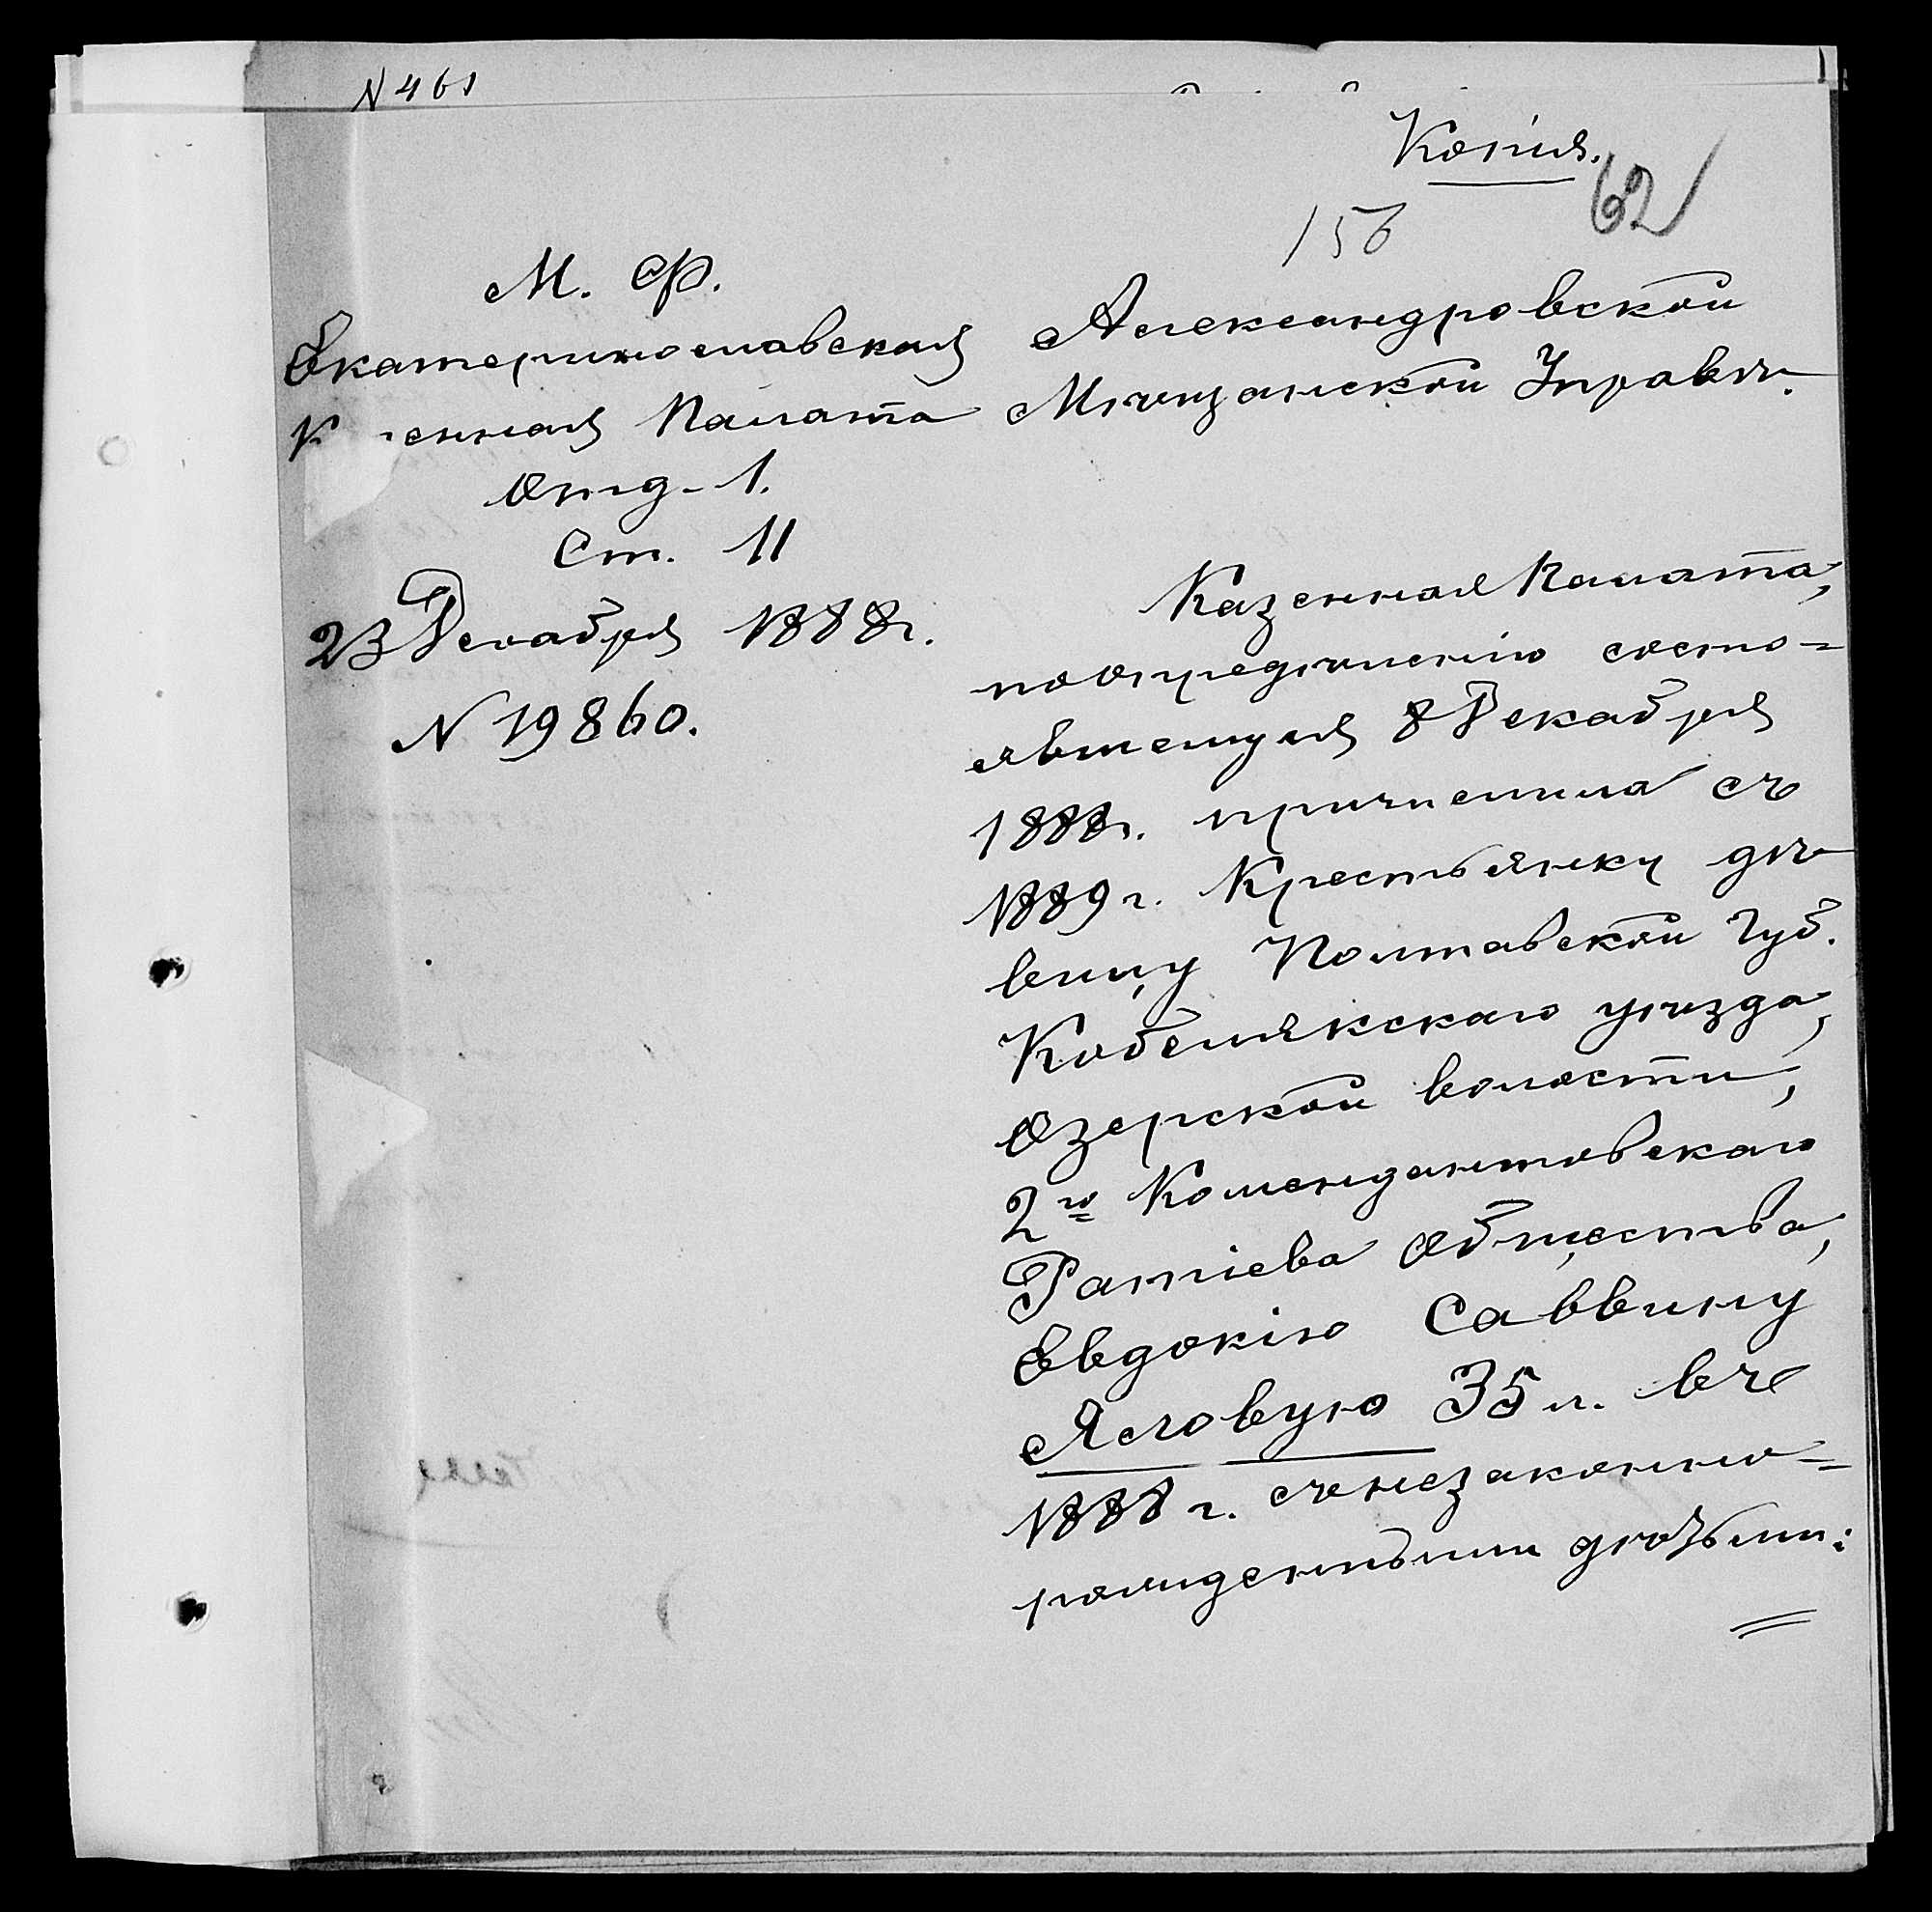 N 461
Копія.
62
156
М. Ф.
Екатеринославская
К енная Палата
Отд. 1.
Ст. 11
23 Декабря 1888 г.
N 19860.
Александровской
Мѣщанской Управѣ.
Казенная Палата,
по опредѣленію состо=
явшемуся 8 Декабря
1888 г. причислила съ
1889 г. Крестьянку дѣ
вицу Полтавской Губ.
Кобелякскаго уѣзда,
Озерской волости,
2го Комендантовскаго
Общества,
Евдокію Саввину
Ясловую 35 л. въ
1888 г. съ незаконно=
рожденными дѣтьми: